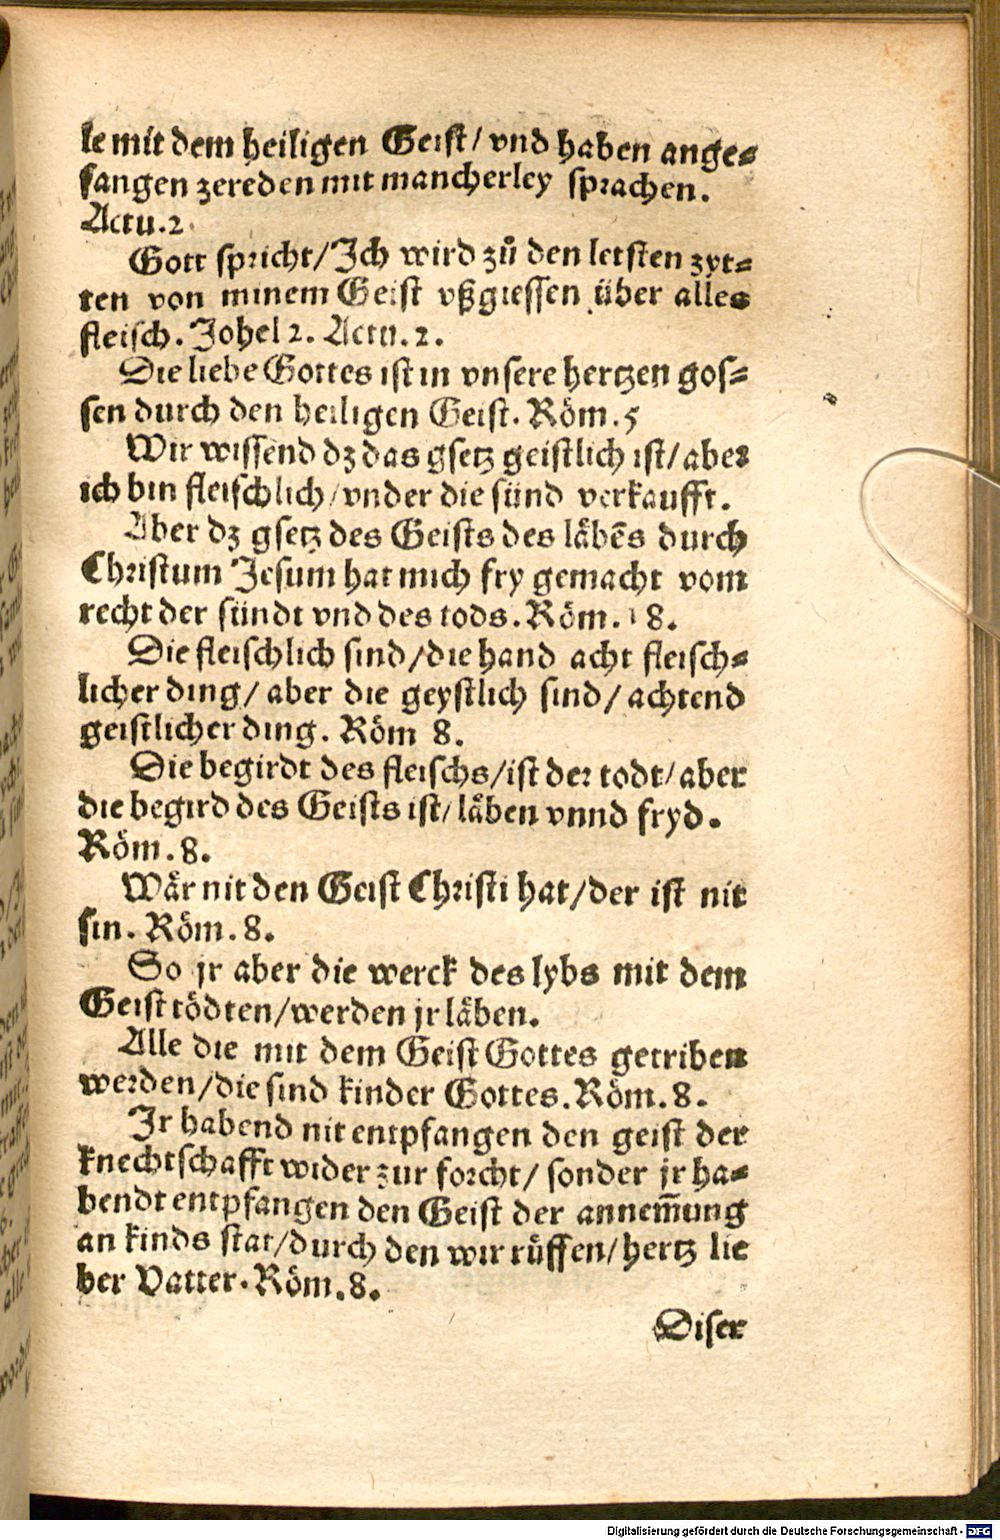 le mit dem heiligen Geist/ vnd haben ange⸗
fangen zereden mit mancherley sprachen.
Actu.2.
Gott spricht/ Ich wird zů den letsten zyt⸗
ten von minem Geist vßgiessen über alles
fleisch. Johel 2. Actu. 2.
Die liebe Gottes ist in vnsere hertzen gos⸗
sen durch den heiligen Geist. Röm. 5
Wir wissend dz das gsetz geistlich ist/ aber
ich bin fleischlich/ vnder die sünd verkaufft.
Aber dz gsetz des Geists des läbēs durch
Christum Jesum hat mich fry gemacht vom
recht der sündt vnd des tods. Röm. 8.
Die fleischlich sind/ die hand acht fleisch⸗
licher ding/ aber die geystlich sind/ achtend
geistlicher ding. Röm 8.
Die begirdt des fleischs/ ist der todt/ aber
die begird des Geists ist/ läben vnnd fryd.
Röm. 8.
Wär nit den Geist Christi hat/ der ist nit
sin. Röm. 8.
So jr aber die werck des lybs mit dem
Geist tödten/ werden jr läben.
Alle die mit dem Geist Gottes getriben
werden/ die sind kinder Gottes. Röm. 8.
Ir habend nit entpfangen den geist der
knechtschafft wider zur forcht/ sonder jr ha⸗
bendt entpfangen den Geist der annem̄ung
an kinds stat/ durch den wir rüffen/ hertz lie
ber Vatter. Röm. 8.
Diser
Digitalisierung gefördert durch die Deutsche Forschungsgemeinschaft - DFG